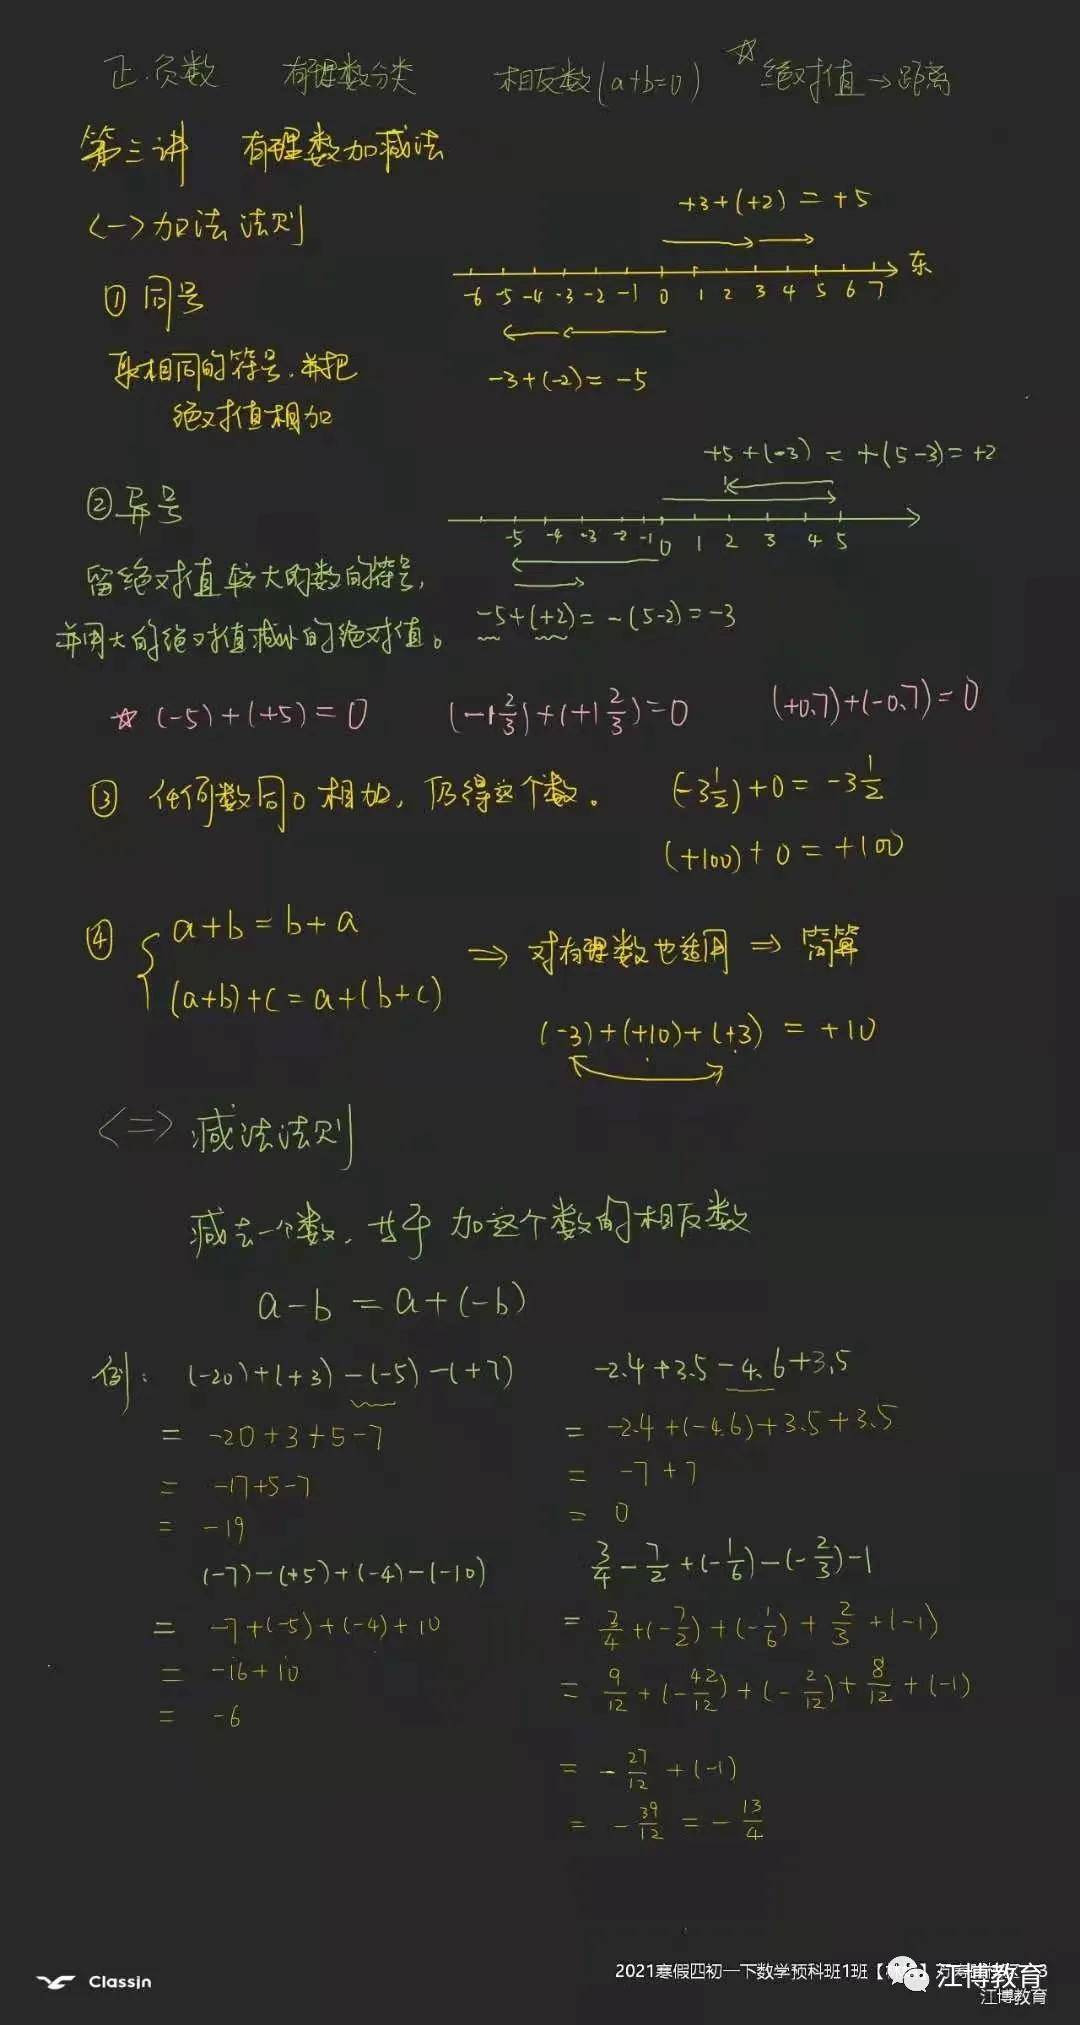 正.负数 有理数分类 相反数(a+b=0) ☆绝对值→距离
第三讲 有理数加减法
<一>加法法则
+3+(+2) = +5
东
-6 -5 -4 -3 -2 -1 0 1 2 3 4 5 6 7
① 同号
取相同的符号.并把
绝对值相加
-3+(-2)= -5
+5+(-3) = +(5-3)=+2
② 异号
-5 -4 -3 -2 -1 0 1 2 3 4 5
留绝对值较大的数的符号,
-5+(+2)= -(5-2)=-3
并用大的绝对值减小的绝对值。
☆ (-5)+(+5)=0 (-1 2/3)+(+1 2/3)=0 (+0.7)+(-0.7)=0
③ 任何数同0相加,仍得这个数。 (-3 1/2)+0=-3 1/2
(+100)+0=+100
④ { a+b=b+a
(a+b)+c=a+(b+c)
⇒ 对有理数也适用 ⇒ 简算
(-3)+(+10)+(+3) = +10
<二> 减法法则
减去一个数,等于 加这个数的相反数
a-b = a+(-b)
例: (-20)+(+3)-(-5)-(+7)
= -20+3+5-7
= -17+5-7
= -19
(-7)-(+5)+(-4)-(-10)
= -7+(-5)+(-4)+10
= -16+10
= -6
-2.4+3.5-4.6+3.5
= -2.4+(-4.6)+3.5+3.5
= -7+7
= 0
3/4-7/2+(-1/6)-(-2/3)-1
= 3/4+(-7/2)+(-1/6)+2/3+(-1)
= 9/12+(-42/12)+(-2/12)+8/12+(-1)
= -27/12+(-1)
= -39/12=-13/4
ClassIn
2021寒假四初一下数学预科班1班【
江博教育
江博教育